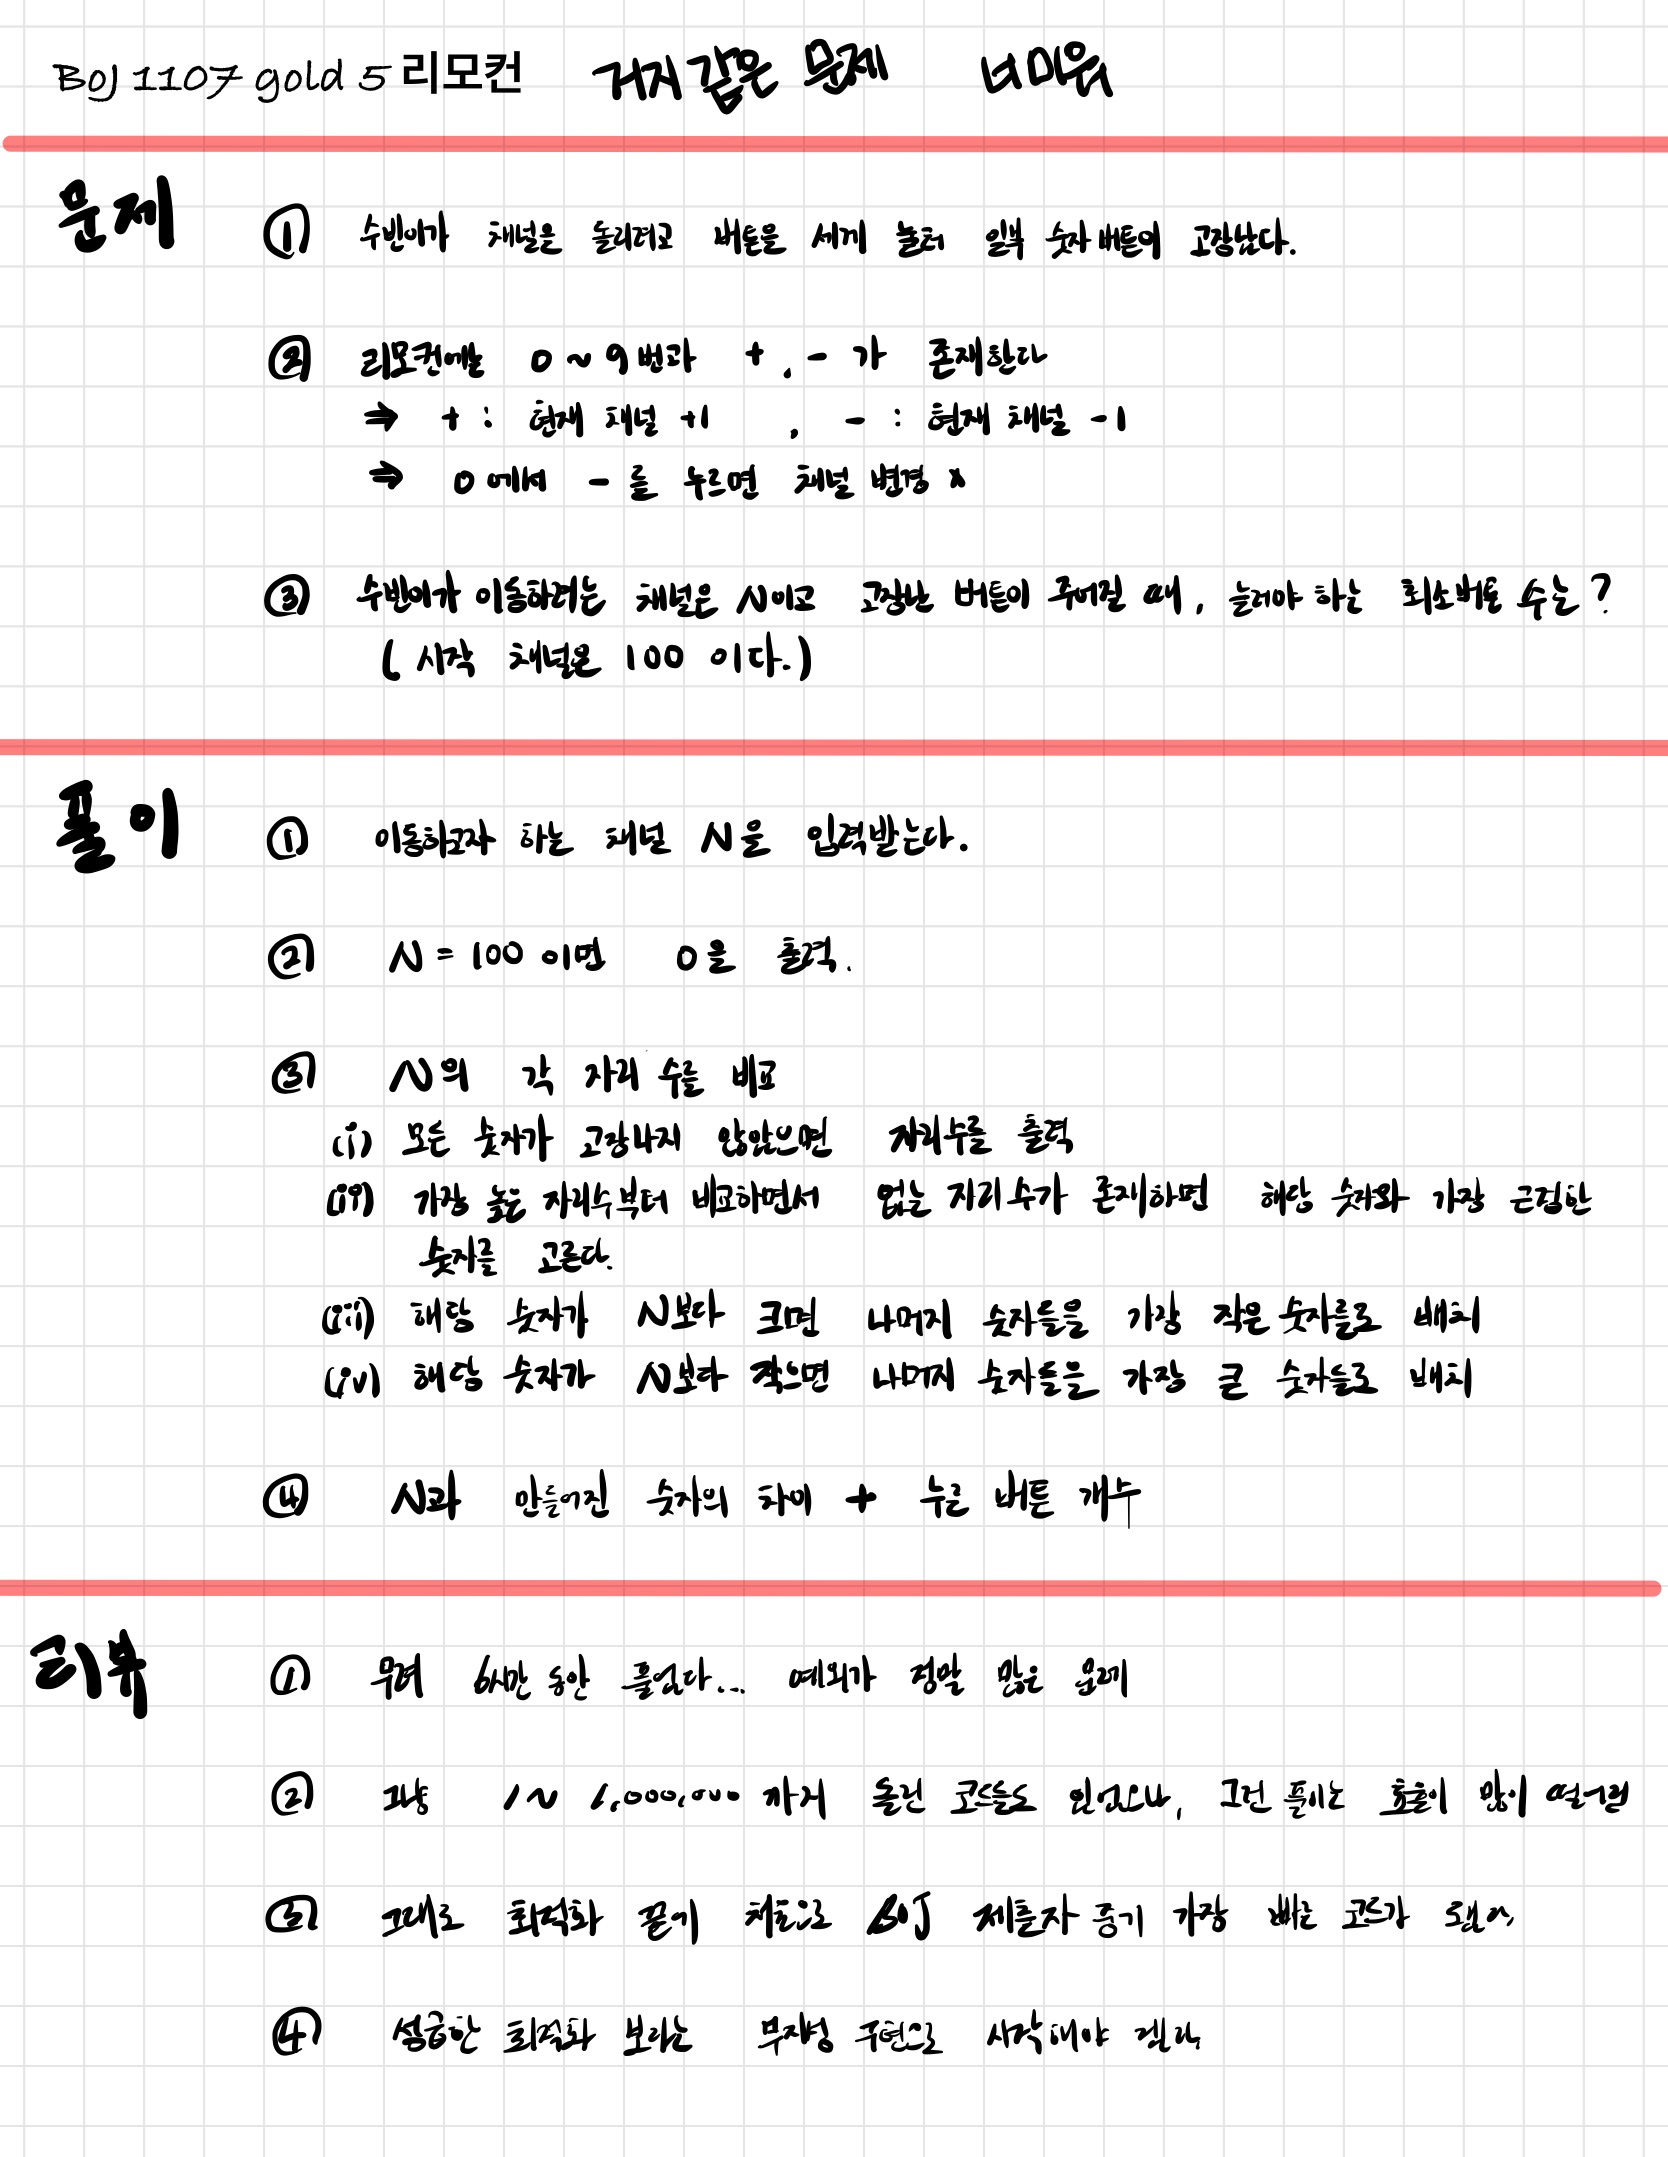 BOJ 1107 gold 5 리모컨 거지같은 문제 너미워
문제
① 수빈이가 채널을 돌리려고 버튼을 세게 눌러 일부 숫자 버튼이 고장났다.
② 리모컨에는 0 ~ 9 번과 +, - 가 존재한다
⇒ + : 현재 채널 +1 , - : 현재 채널 -1
⇒ 0 에서 - 를 누르면 채널 변경 x
③ 수빈이가 이동하려는 채널은 N이고 고장난 버튼이 주어질 때, 눌러야 하는 최소버튼 수는?
( 시작 채널은 100 이다.)
풀이
① 이동하고자 하는 채널 N을 입력받는다.
② N = 100 이면 0을 출력.
③ N의 각 자리 수를 비교
(i) 모든 숫자가 고장나지 않았으면 자리수를 출력
(ii) 가장 높은 자리수부터 비교하면서 없는 자리수가 존재하면 해당 숫자와 가장 근접한
숫자를 고른다.
(iii) 해당 숫자가 N보다 크면 나머지 숫자들을 가장 작은 숫자들로 배치
(iv) 해당 숫자가 N보다 작으면 나머지 숫자들을 가장 큰 숫자들로 배치
④ N과 만들어진 숫자의 차이 + 누른 버튼 개수
리뷰
① 무려 6시간 동안 풀었다... 예외가 정말 많은 문제
② 그냥 1 ~ 1,000,000 까지 돌린 코드들도 있었으나, 그런 풀이는 효율이 많이 떨어짐
③ 그대로 최적화 끝기 체출으로 BOJ 제출자 중기 가장 빠른 코드가 됐다,
④ 섬급한 최적화 보다는 무지성 구현으로 시작해야 겠다,